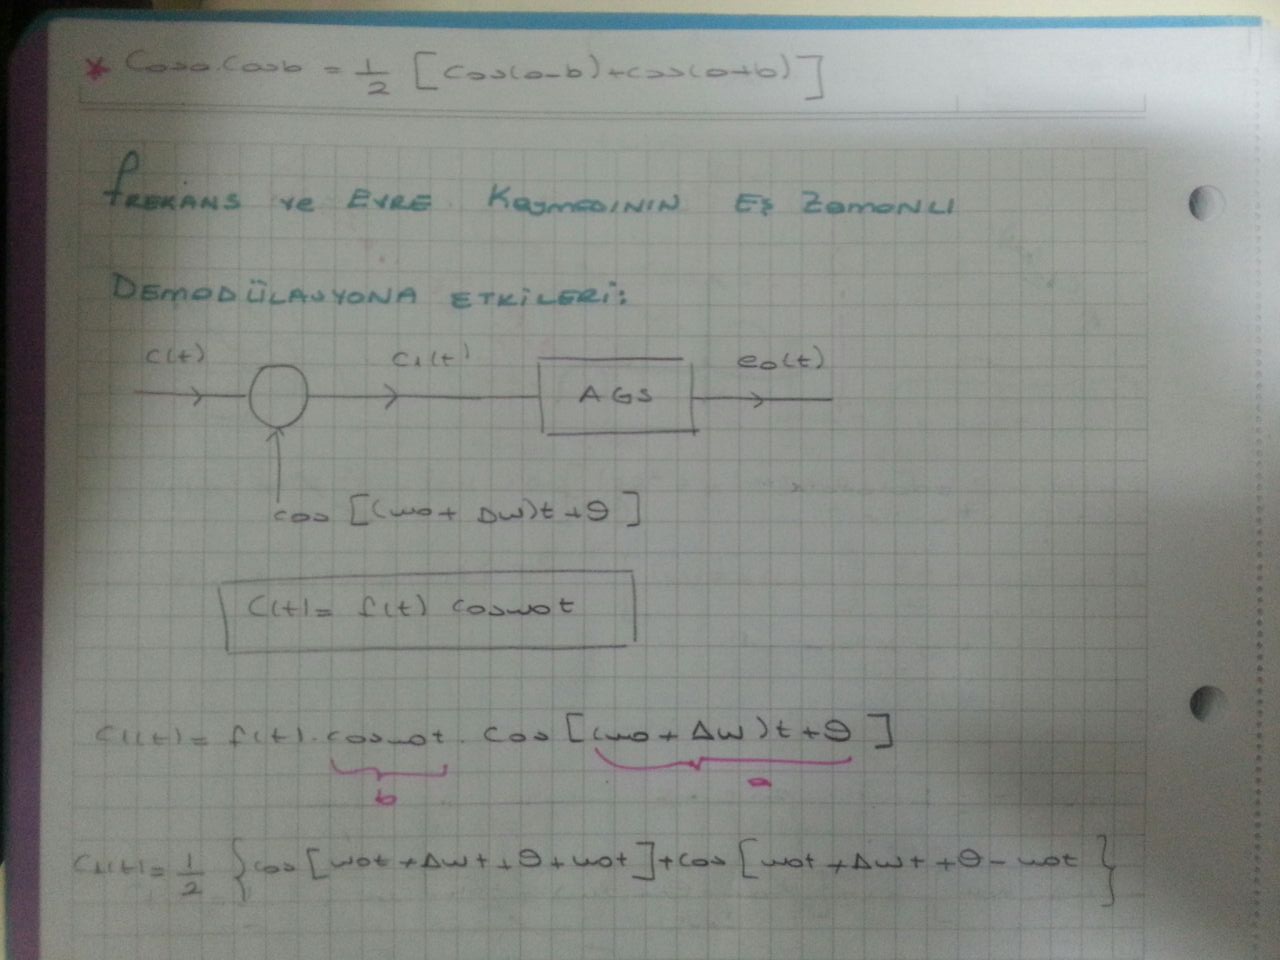 * Cosa.Cosb = 1/2 [Cos(a-b)+cos(a+b)]
FREKANS ve EVRE KAYMASININ EŞ ZAMANLI
DEMODÜLASYONA ETKİLERİ:
C(t) C₁(t) AGS e₀(t)
cos [(ω₀+ Δω)t+θ]
C(t)= f(t) cosω₀t
C₁(t)= f(t).cosω₀t. Cos [(ω₀+Δω)t+θ]
b a
C₁(t)= 1/2 {cos[ω₀t+Δωt+θ+ω₀t]+cos[ω₀t+Δωt+θ-ω₀t}